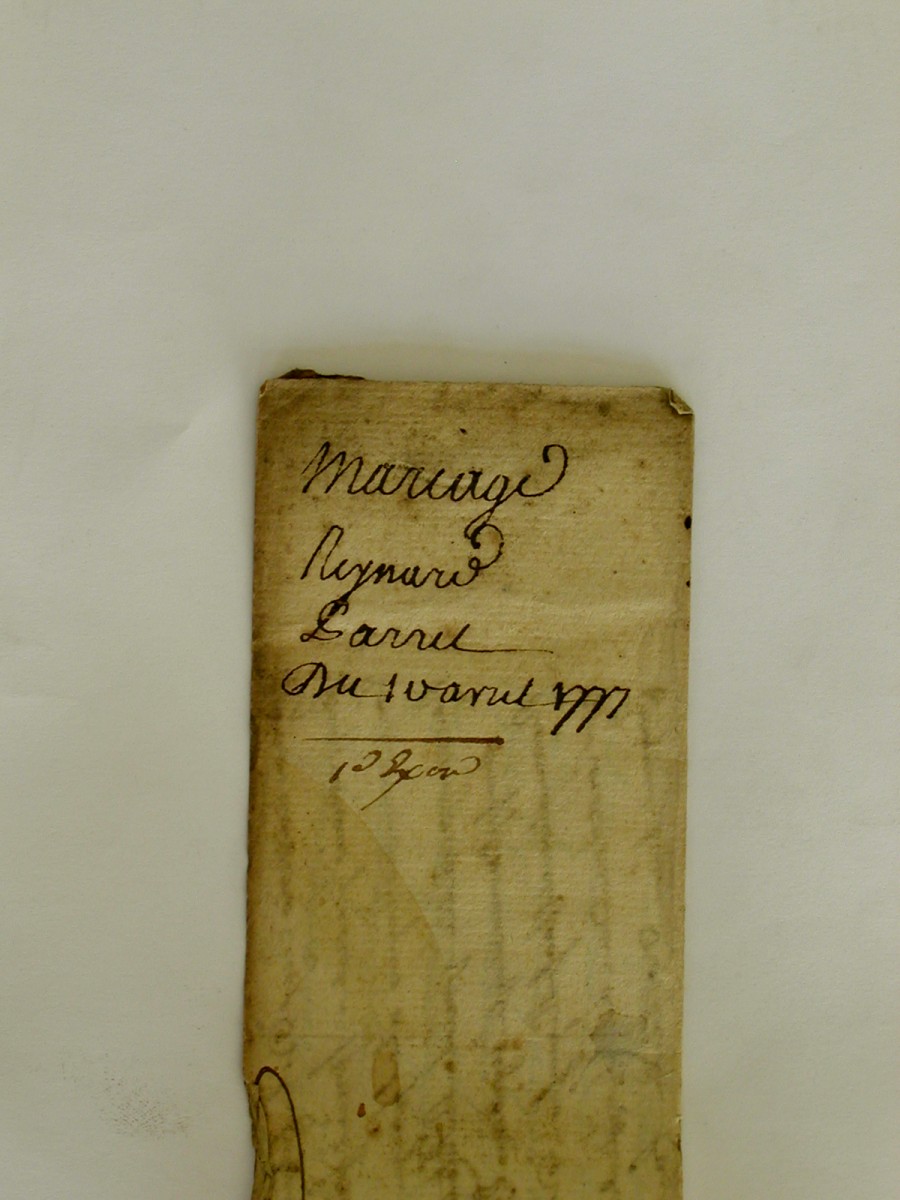 Mariage
Reynard
Parrel
Du 10 avril 1777
1e Expon